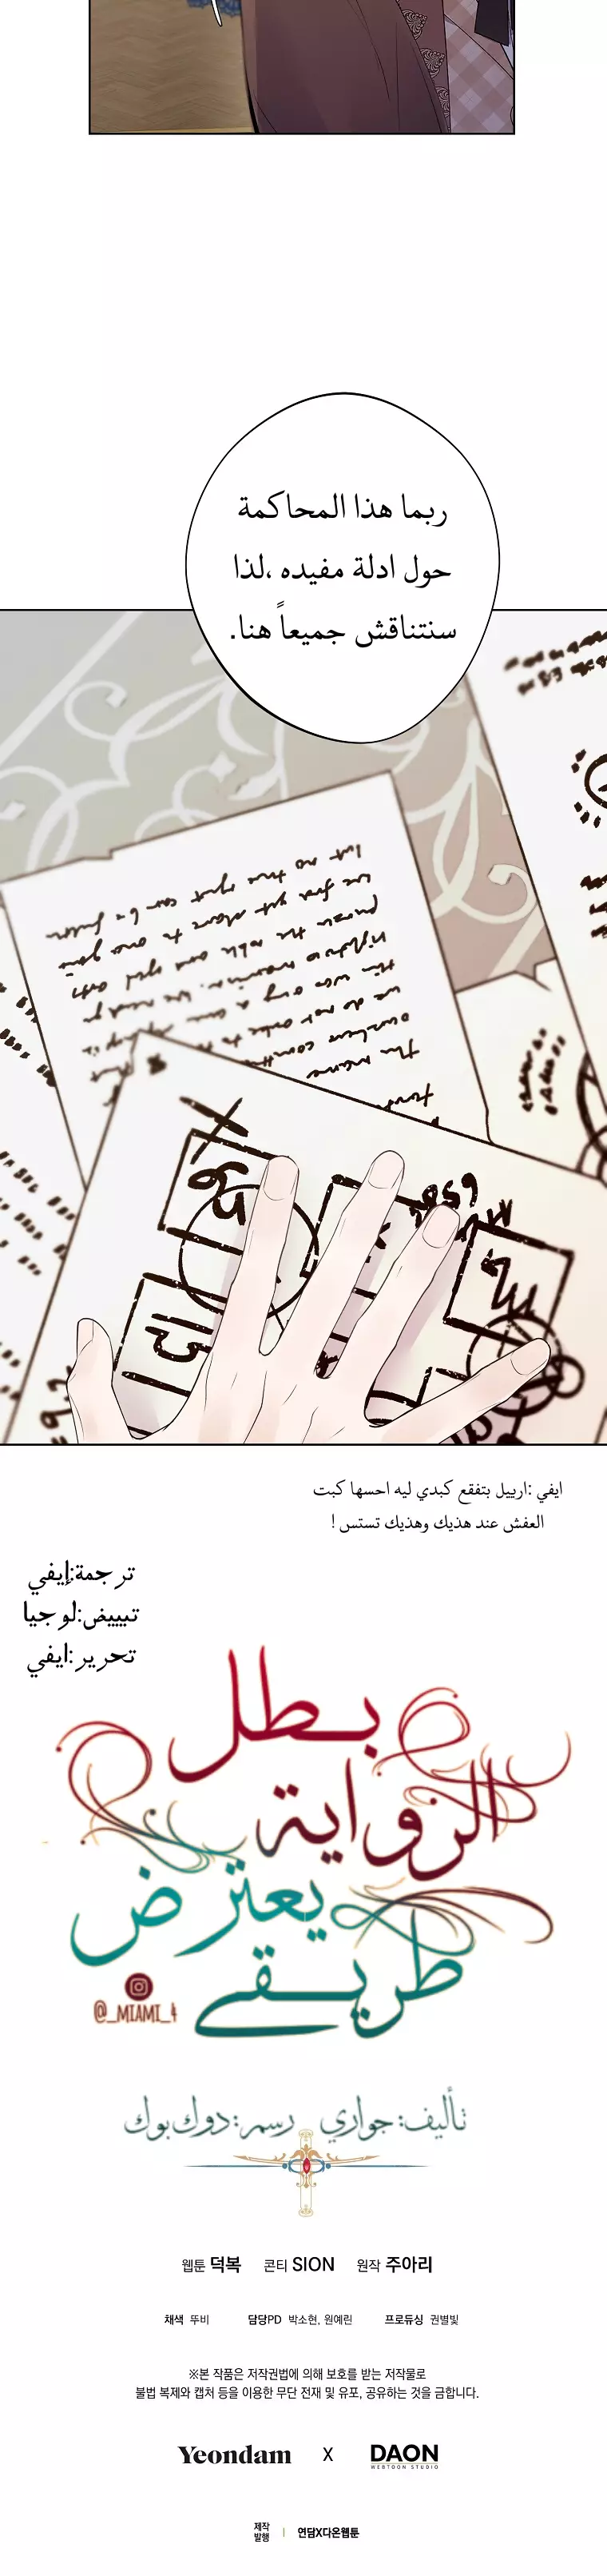 ربما هذا المحاكمة
حول ادلة مفيده ،لذا
سنتناقش جميعاً هنا.
ايفي :ارييل بتفقع كبدي ليه احسها كبت
العفش عند هذيك وهذيك تستس !
ترجمة:إيفي
تبييض:لوجيا
تحرير:ايفي
بطل
الرواية
يعترض
طريقي
@_MIAMI_4
تأليف: جواري رسم: دوك بوك
웹툰 덕복 콘티 SION 원작 주아리
채색 뚜비 담당PD 박소현, 원예린 프로듀싱 권별빛
※본 작품은 저작권법에 의해 보호를 받는 저작물로
불법 복제와 캡처 등을 이용한 무단 전재 및 유포, 공유하는 것을 금합니다.
Yeondam X DAON
WEBTOON STUDIO
제작
발행 | 연담X다온웹툰